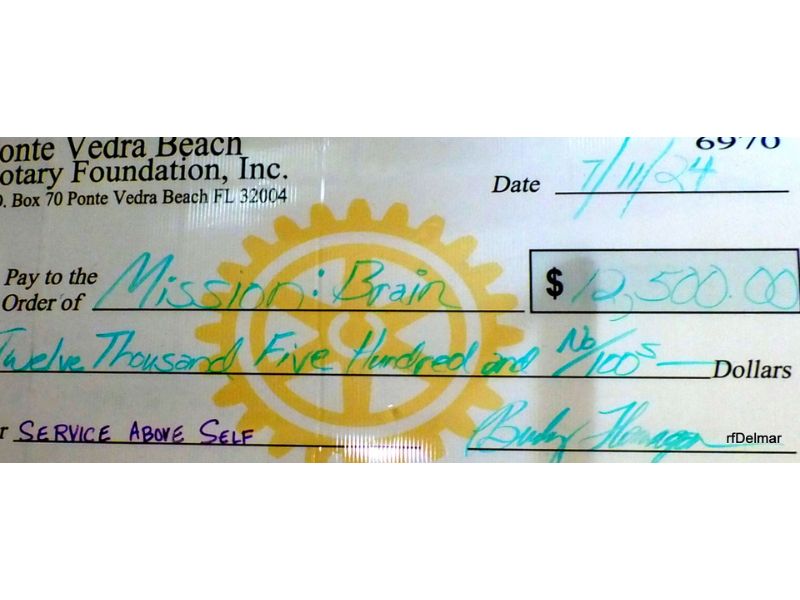 onte Vedra Beach
otary Foundation, Inc.
O. Box 70 Ponte Vedra Beach FL 32004
6970
Date 7/11/24
Pay to the
Order of Mission: Brain
$ 12,500.00
Twelve Thousand Five Hundred and No/100s Dollars
r SERVICE ABOVE SELF
rfDelmar